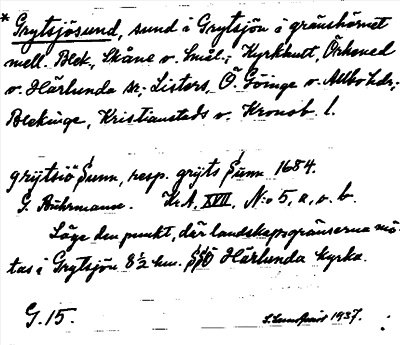 * Grytsjösund, sund i Grytsjön i gränshörnet
mell. Blek., Skåne o. Smål.; Kyrkhult, Örkened
o. Härlunda sn; Listers, Ö. Göinge o. Allbo hdr;
Blekinge, Kristianstads o. Kronob. l.
grijtsiö Sunn, resp. grijts Sunn 1684.
G. Buhrmann. Kr.A. XVII, N:o 5, a, o. b.
Låge den punkt, där landskapsgränserna mö-
tas i Grytsjön 8½ km. SSÖ Härlunda kyrka.
G. 15.
1937.